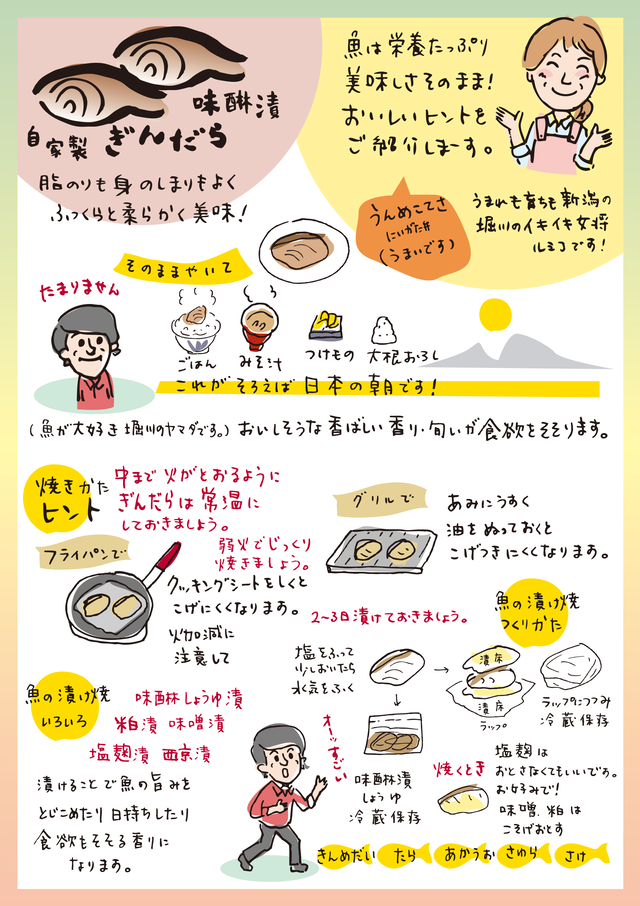 味醂漬
自家製 ぎんだら
脂のりも身のしまりもよく
ふっくらと柔らかく美味!
魚は栄養たっぷり
美味しさそのまま!
おいしいヒントを
ご紹介しまーす。
うまれも育ちも新潟の
堀川のイキイキ女将
ルミコです!
うんめこてさ
にいがた弁
(うまいです)
そのままやいて
たまりません
ごはん
みそ汁
つけもの
大根おろし
これがそろえば日本の朝です!
(魚が大好き堀川のヤマダです。)おいしそうな香ばしい香り・匂いが食欲をそそります。
焼きかた
ヒント
中まで火がとおるように
ぎんだらは常温に
しておきましょう。
フライパンで
弱火でじっくり
焼きましょう。
クッキングシートをしくと
こげにくくなります。
火加減に
注意して
グリルで
あみにうすく
油をぬっておくと
こげつきにくくなります。
魚の漬け焼
つくりかた
2~3日漬けておきましょう。
塩をふって
少しおいたら
水気をふく
漬床
漬床
ラップ
ラップにつつみ
冷蔵保存
味醂漬
しょうゆ
冷蔵保存
焼くとき
塩麹は
おとさなくてもいいです。
お好みで!
味噌、粕は
こそげおとす
魚の漬け焼
いろいろ
味醂しょうゆ漬
粕漬 味噌漬
塩麹漬 西京漬
漬けることで魚の旨みを
とじこめたり日持ちしたり
食欲をそそる香りに
なります。
オーッすごい
きんめだい
たら
あかうお
さわら
さけ